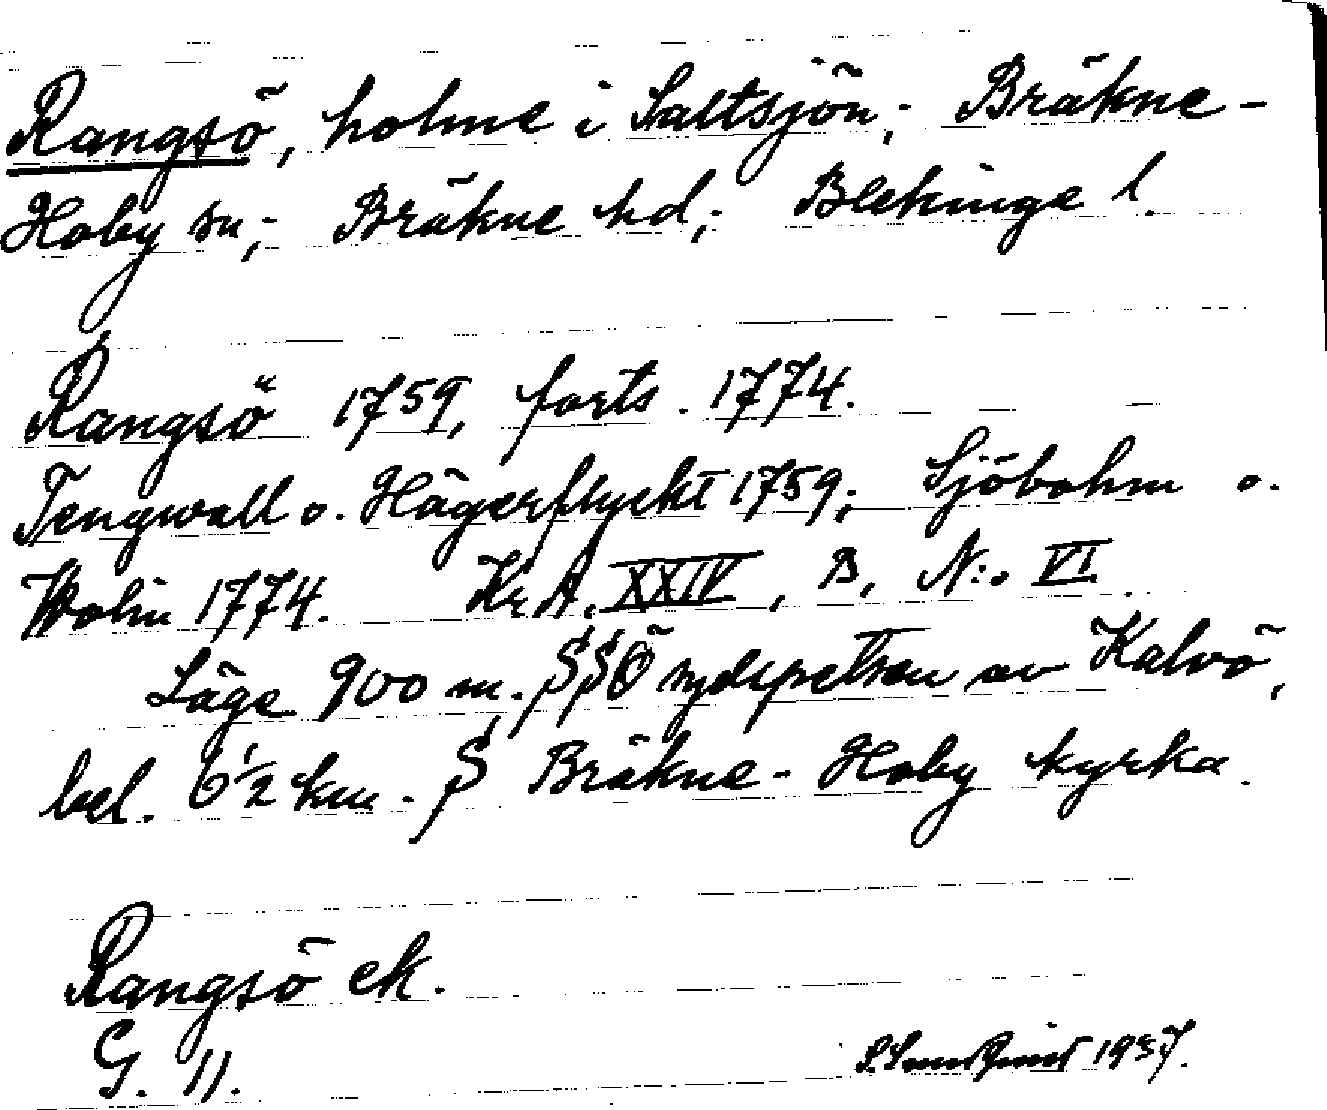 Rangsö, holme i Saltsjön; Bräkne-
Hoby sn; Bräkne hd; Blekinge l.
Rangsö 1759, forts. 1774.
Tengwall o. Hägerflyckt 1759; Sjöbohm o.
Wolin 1774. Kr.A. XXIV, B, N:o VI.
Läge 900 m. SSÖ sydspetsen av Kalvö,
bel. 6 1/2 km. S Bräkne-Hoby kyrka.
Rangsö ek.
G. 11.
1937.